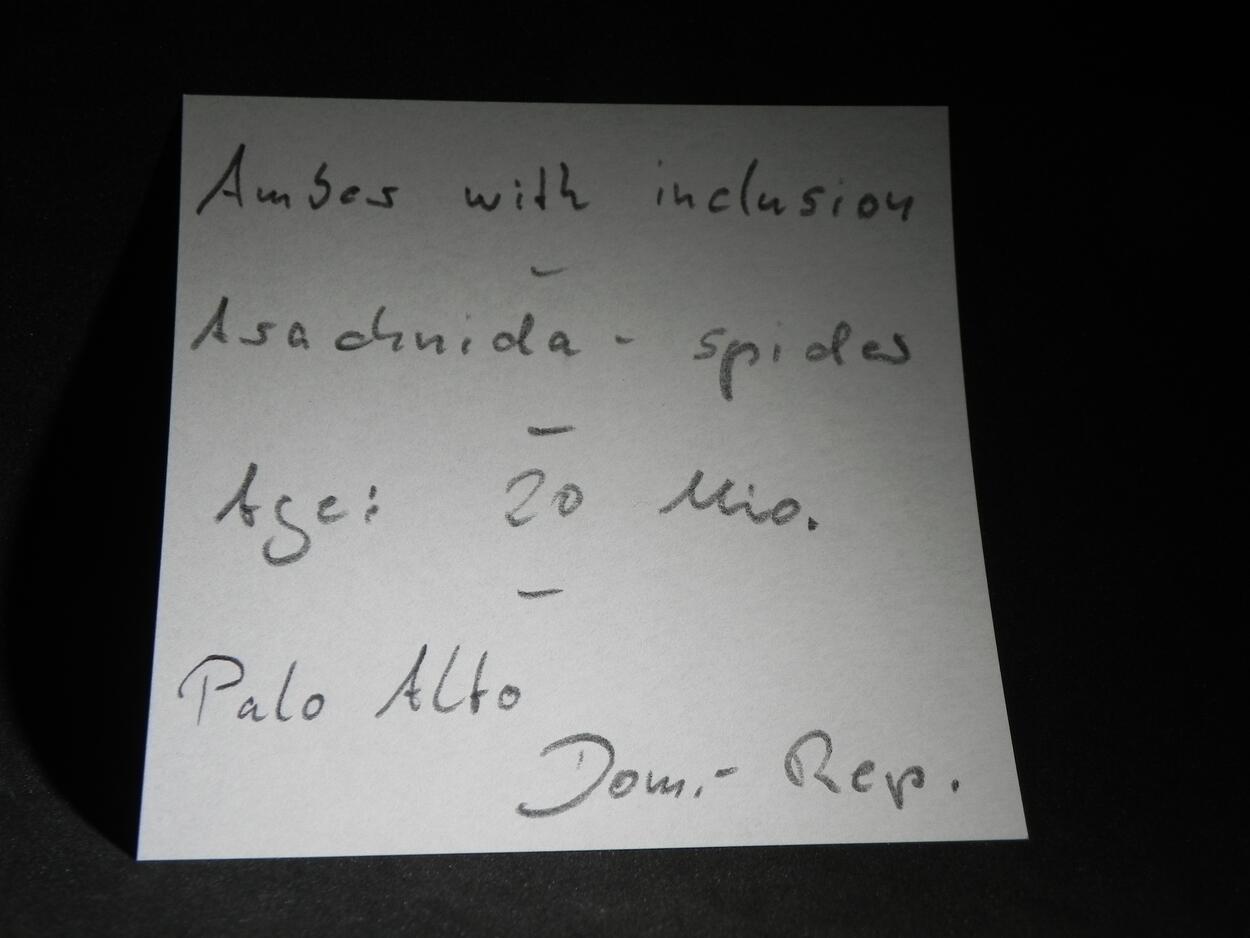 Amber with inclusion
-
Arachnida - spider
-
Age: 20 Mio.
-
Palo Alto
Dom.- Rep.